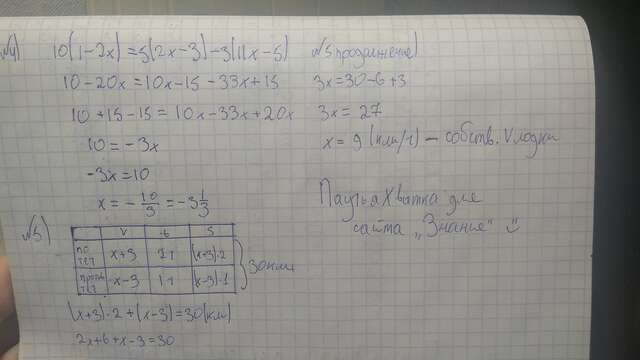 №4) 10(1-2x)=5(2x-3)-3(11x-5)
10-20x=10x-15-33x+15
10+15-15=10x-33x+20x
10=-3x
-3x=10
x=-10/3=-3 1/3
№5)
V t S
по теч x+3 2ч (x+3)·2
против теч x-3 1ч (x-3)·1
30км
(x+3)·2+(x-3)=30(км)
2x+6+x-3=30
№5 продолжение)
3x=30-6+3
3x=27
x=9(км/ч) – собств. V лодки
Паучья Хватка для
сайта „Знание"